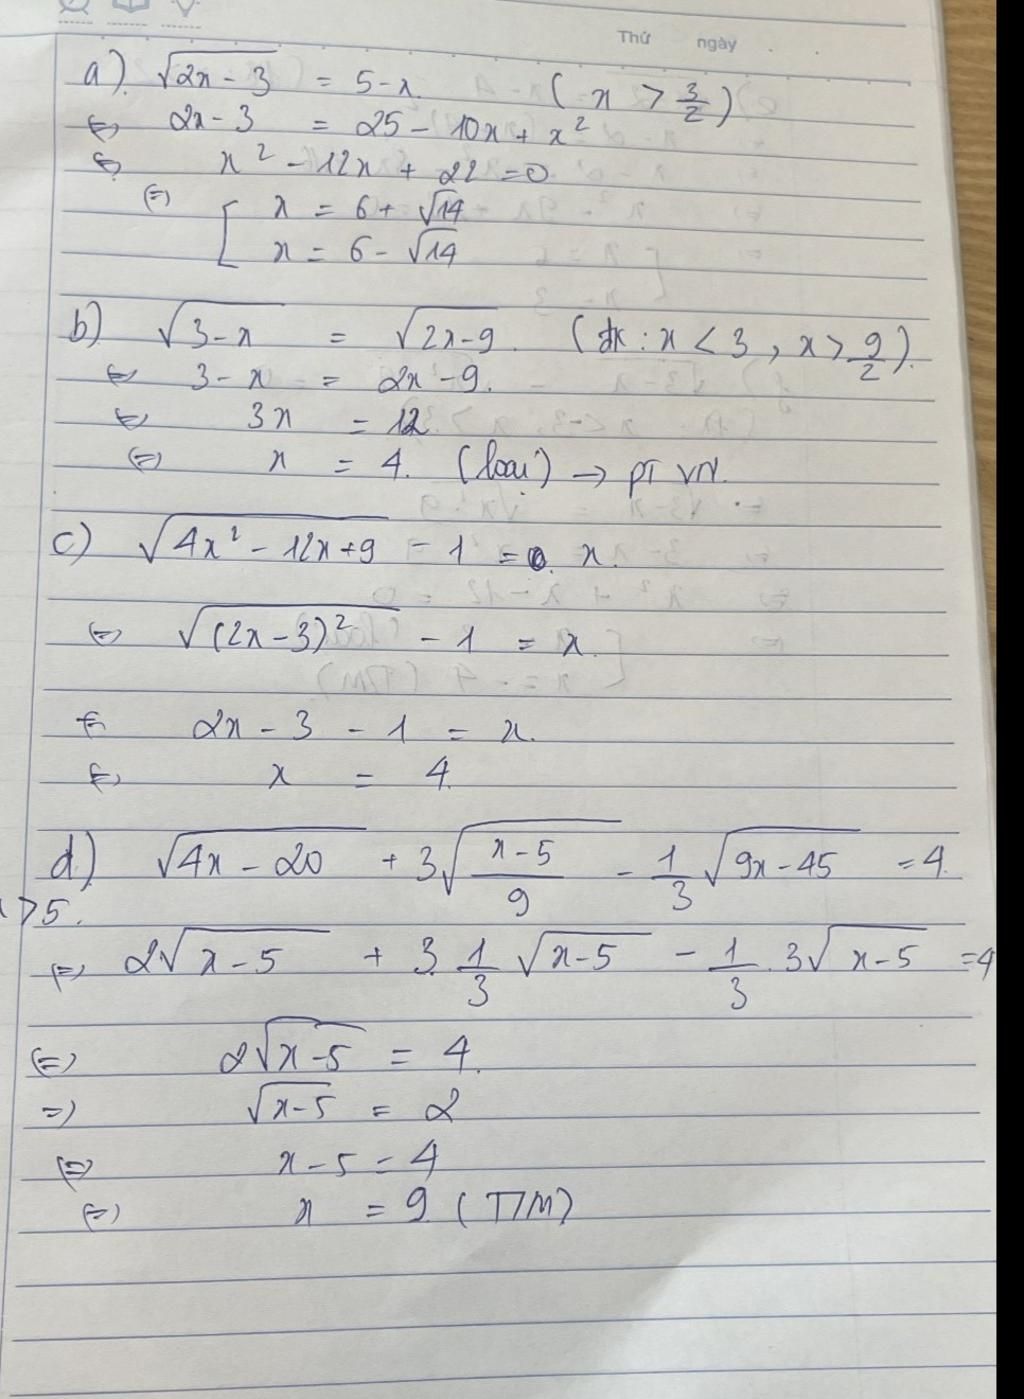 Thứ ngày
a) √(2x - 3) = 5 - x. (x > 3/2)
⇔ 2x - 3 = 25 - 10x + x²
⇔ x² - 12x + 22 = 0
⇔ [ x = 6 + √14
x = 6 - √14
b) √(3 - x) = √(2x - 9). (đk : x < 3, x > 9/2).
⇔ 3 - x = 2x - 9.
⇔ 3x = 12
⇔ x = 4. (loại) → PT VN.
c) √(4x² - 12x + 9) - 1 = x.
⇔ √((2x - 3)²) - 1 = x.
⇔ 2x - 3 - 1 = x.
⇔ x = 4.
d) √(4x - 20) + 3√((x - 5)/9) - 1/3 √(9x - 45) = 4.
x > 5.
⇔ 2√(x - 5) + 3. 1/3 √(x - 5) - 1/3 . 3√(x - 5) = 4
⇔ 2√(x - 5) = 4.
⇒ √(x - 5) = 2
⇔ x - 5 = 4
⇔ x = 9. (T/M)